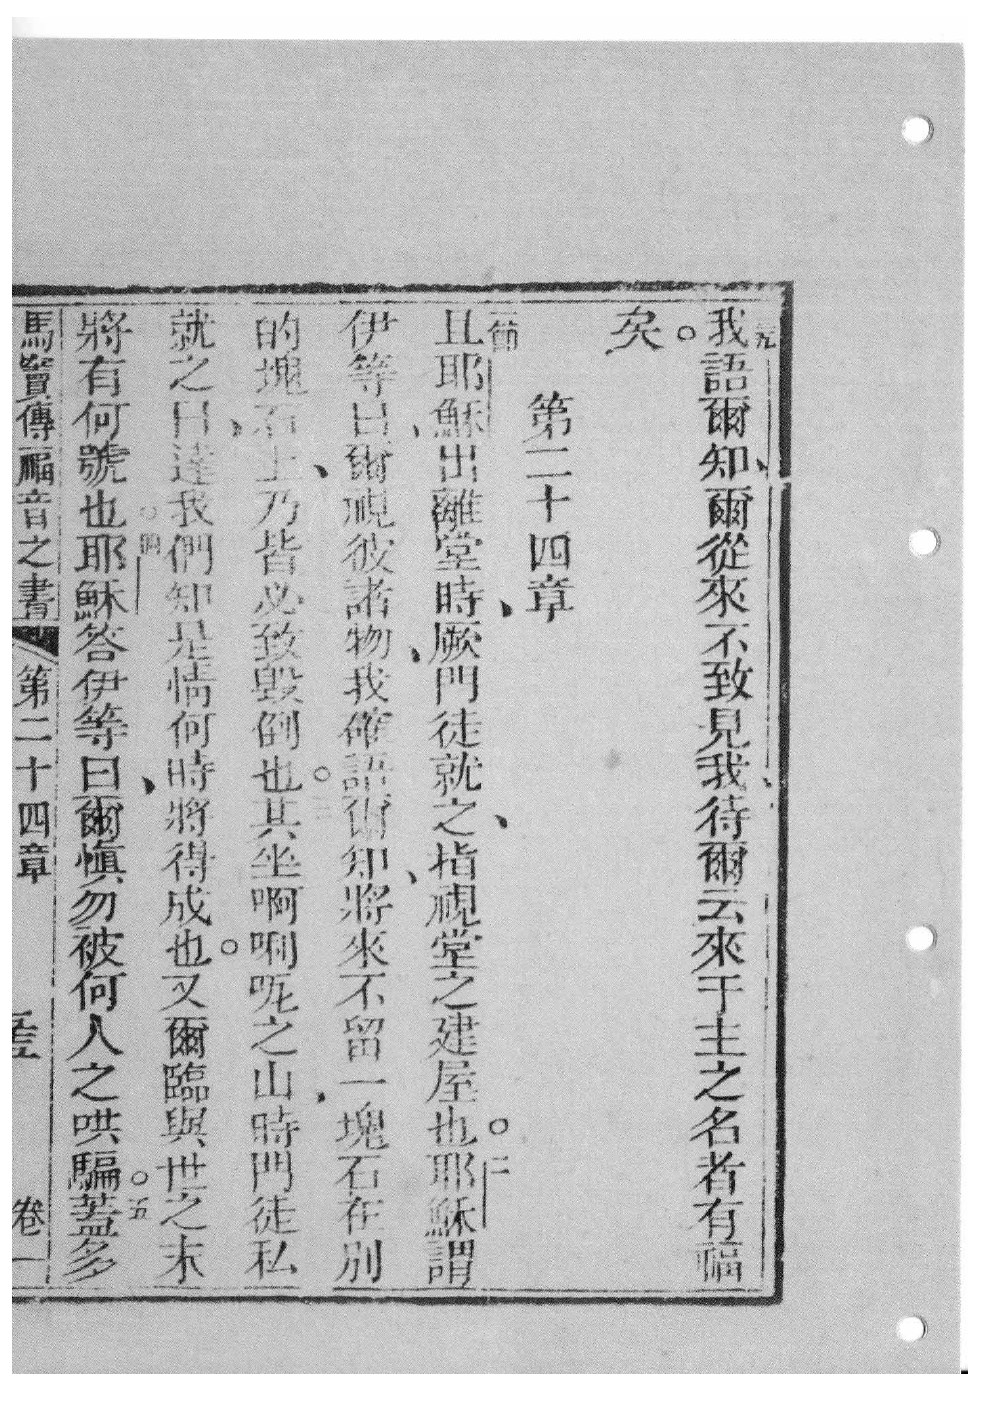 我語爾知爾從來不致見我待爾云來于主之名者有福
矣。
第二十四章
一節
且耶穌出離堂時、厥門徒就之、指視堂之建屋也。二耶穌謂
伊等曰、爾視彼諸物、我確語爾知、將來不留一塊石在別
的塊石上、乃皆必致毀倒也。三其坐啊唎呃之山時、門徒私
就之曰、達我們知是情何時將得成也。又爾臨與世之末
將有何號也。四耶穌答伊等曰、爾慎勿被何人之哄騙。五蓋多
馬竇傳福音之書 第二十四章 卷一